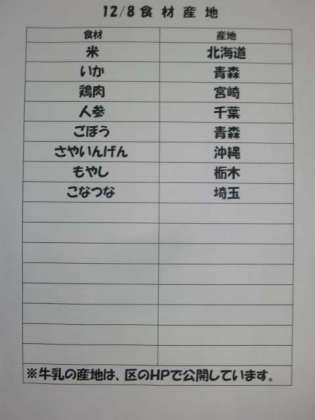 12/8 食 材 産 地
食材 産地
米 北海道
いか 青森
鶏肉 宮崎
人参 千葉
ごぼう 青森
さやいんげん 沖縄
もやし 栃木
こなつな 埼玉
※牛乳の産地は、区のHPで公開しています。